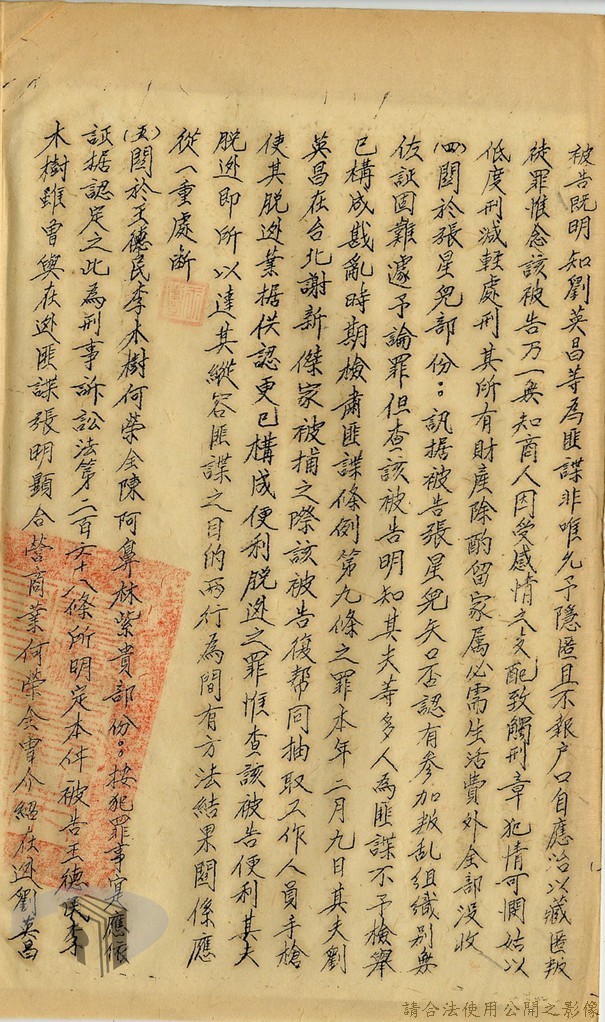 被告既明知劉英昌等為匪諜非唯允予隱匿且不報户口自應治以藏匿叛
徒罪惟念該被告乃一無知商人因受感情之支配致觸刑章犯情可憫姑以
低度刑減輕處刑其所有財產除酌留家属必需生活費外全部没收
(四)関於張星兒部份:訊据被告張星兒矢口否認有參加叛乱組織别無
佐証固難遽予論罪但查該被告明知其夫等多人為匪諜不予檢舉
已構成戡亂時期檢肅匪諜條例第九條之罪本年二月九日其夫劉
英昌在台北謝新傑家被捕之際該被告復帮同抽取工作人員手槍
使其脱逃業据供認更已構成便利脱逃之罪惟查該被告便利其夫
脱逃即所以達其縱容匪諜之目的两行為間有方法結果関係應
從一重處断
(五)関於王德民李木樹何荣全陳阿鼻林紫貴部份:按犯罪事寔應依
証据認定之此為刑事訴訟法第二百六十八條所明定本件被告王德民李
木樹雖曾與在逃匪諜張明顯合營商業何荣全曾介紹在逃劉英昌
請合法使用公開之影像